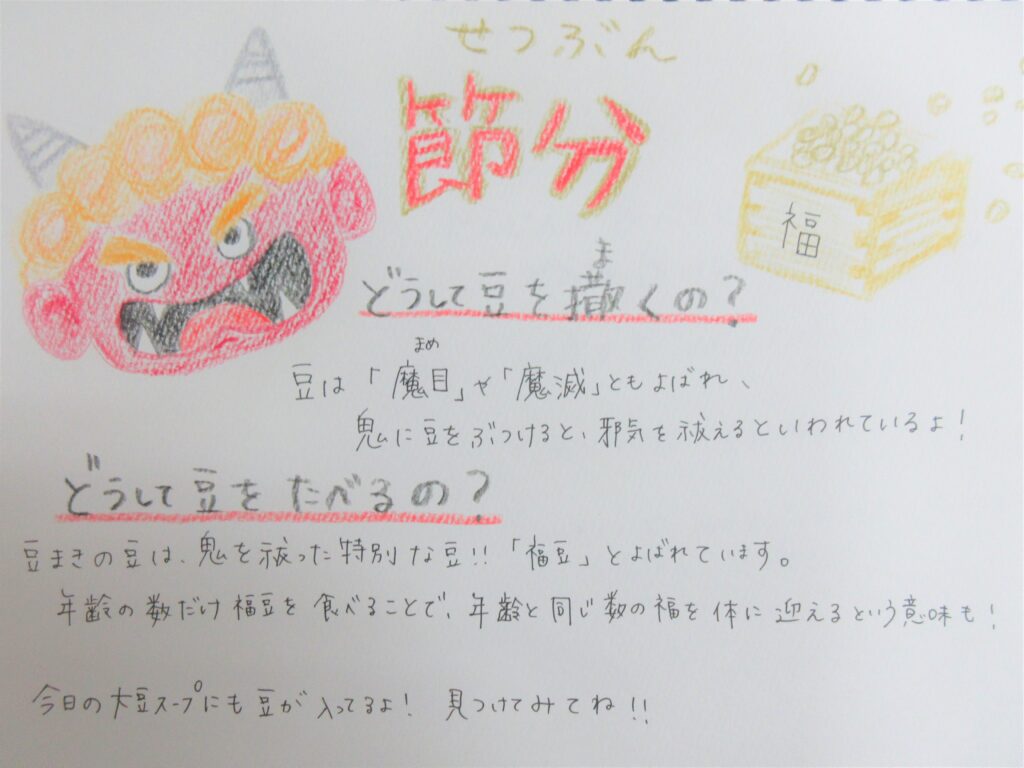 せつぶん
節分
福
ま
どうして豆を撒くの?
まめ
豆は「魔目」や「魔滅」ともよばれ、
鬼に豆をぶつけると、邪気を祓えるといわれているよ!
どうして豆をたべるの?
豆まきの豆は、鬼を祓った特別な豆!!「福豆」とよばれています。
年齢の数だけ福豆を食べることで、年齢と同じ数の福を体に迎えるという意味も!
今日の大豆スープにも豆が入ってるよ! 見つけてみてね!!